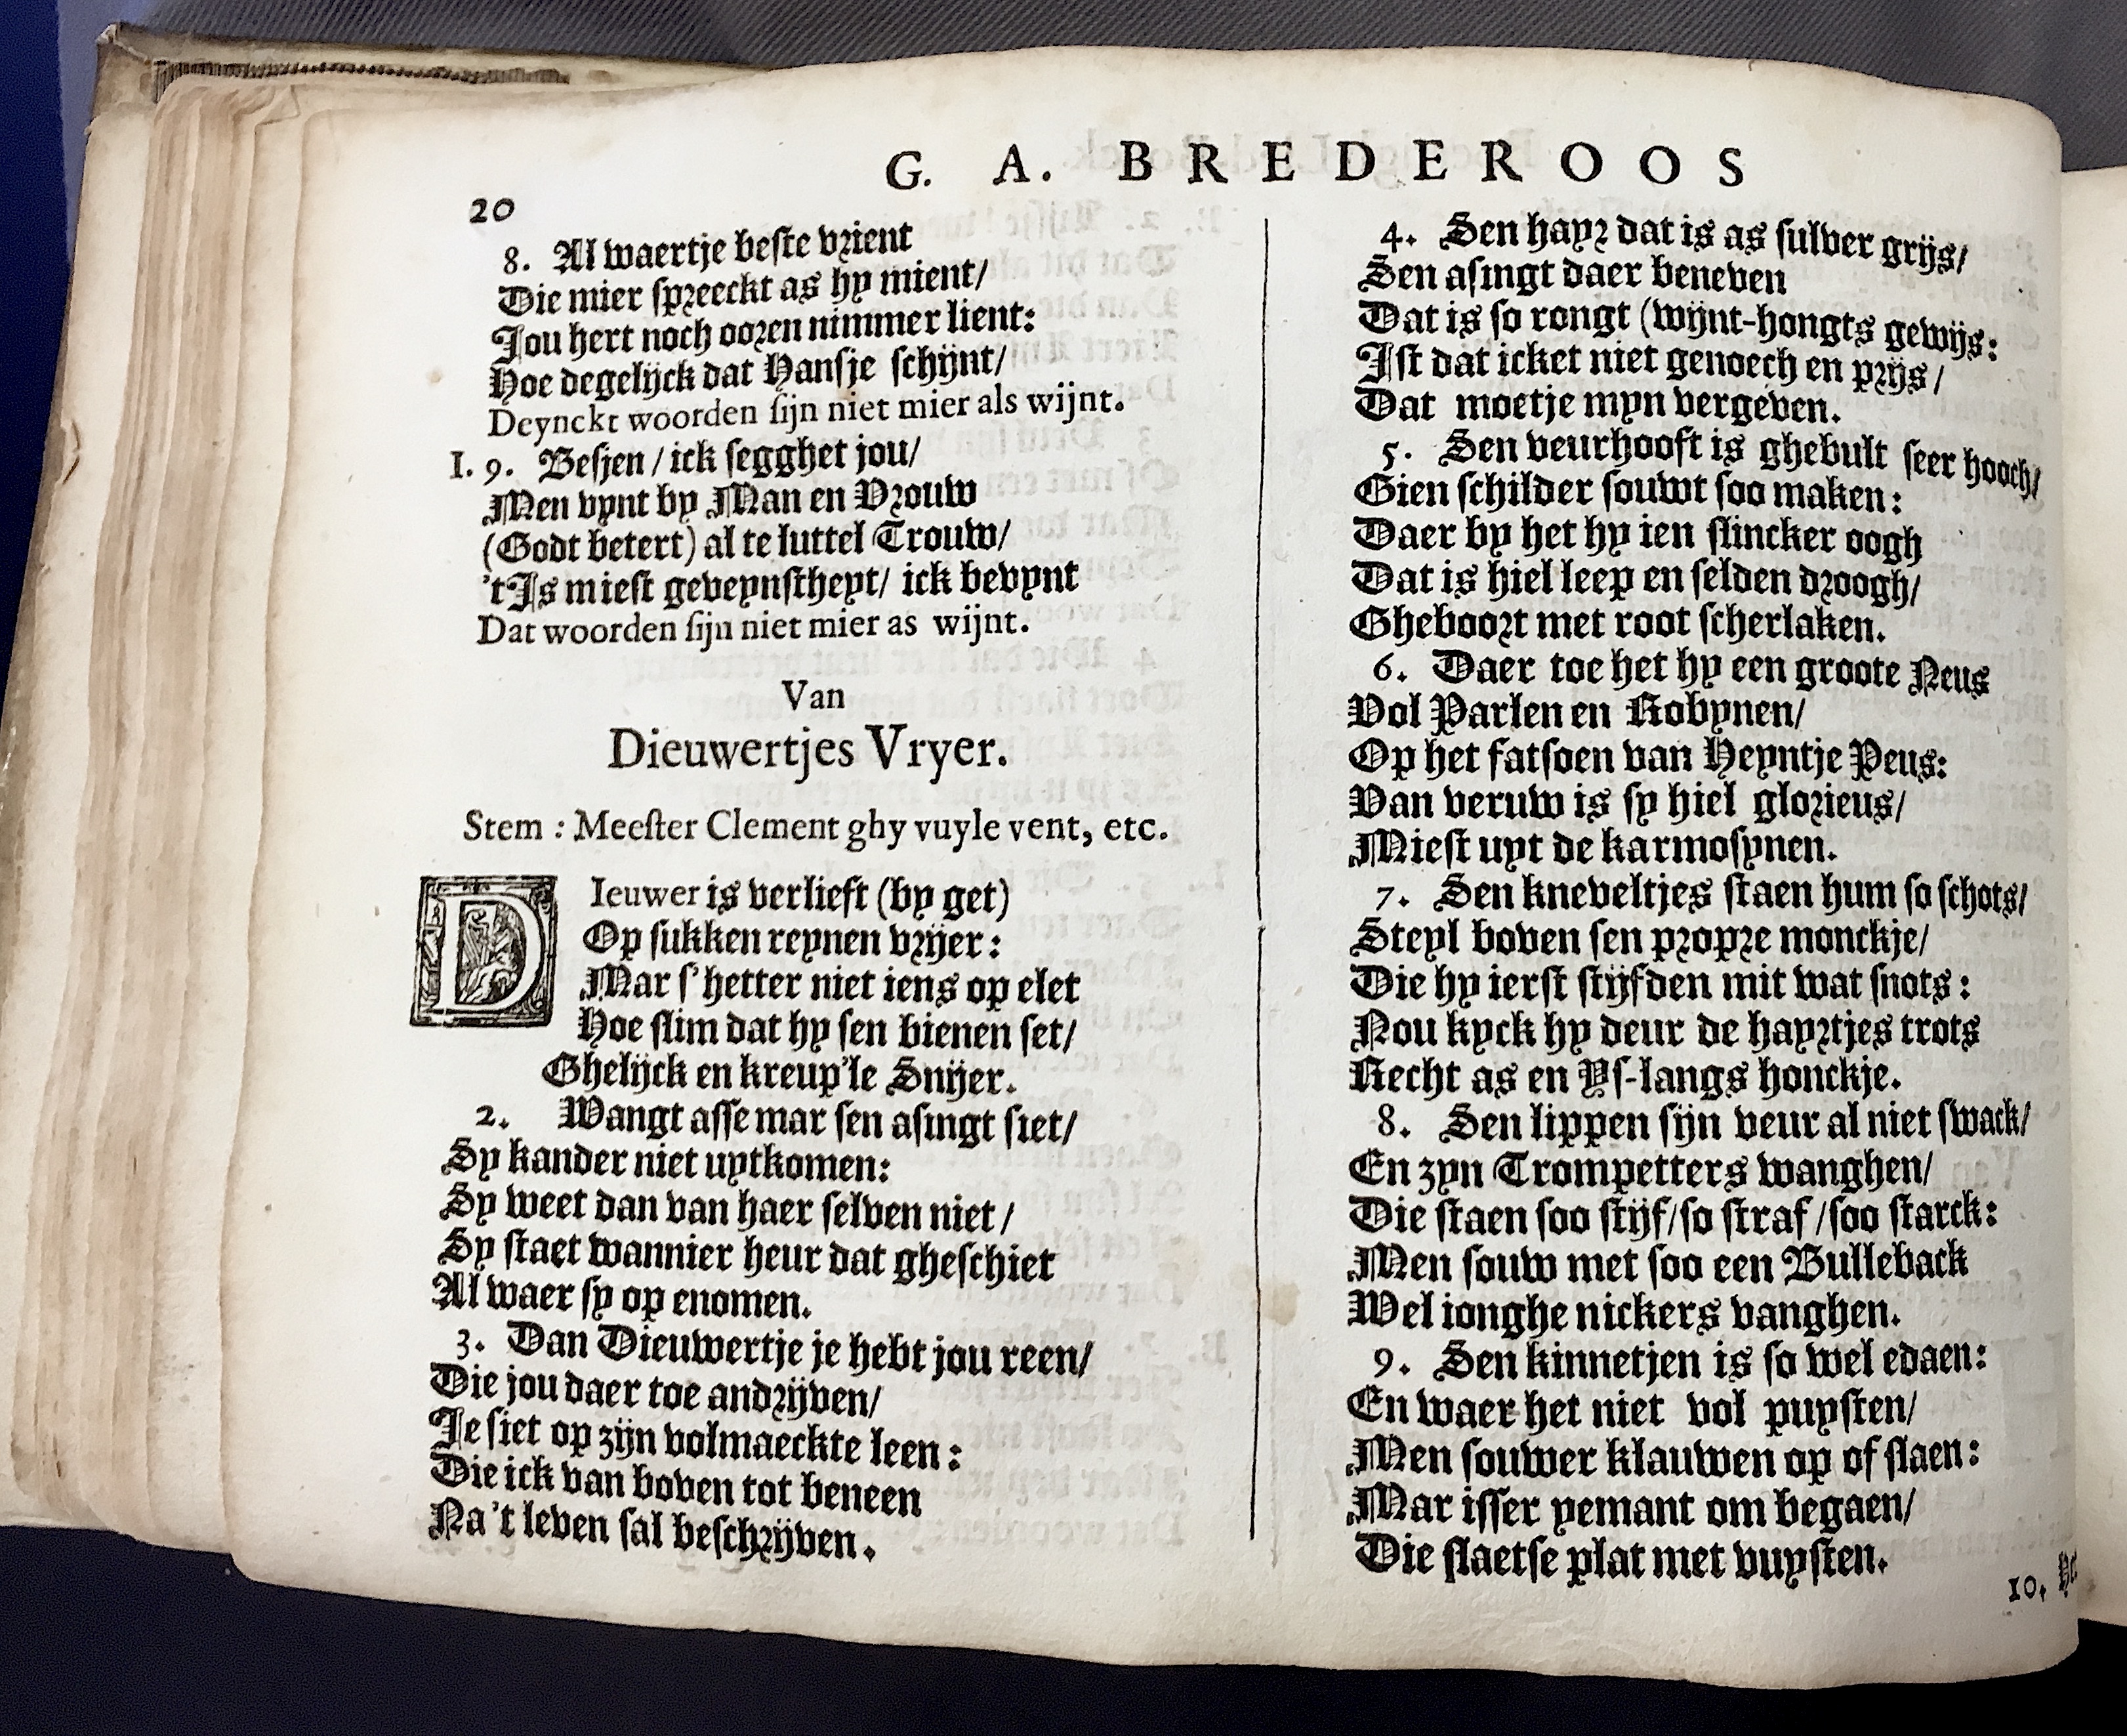 G. A. BREDEROOS
20
8. Al waertje beste vrient
Die mier spreeckt as hy mient/
Jou hert noch ooren nimmer lient:
Hoe degelijck dat Hansje schijnt/
Deynckt woorden sijn niet mier als wijnt.
I. 9. Besjen / ick segghet jou/
Men vynt by Man en Vrouw
(Godt betert) al te luttel Trouw/
'tIs miest geveynstheyt/ ick bevynt
Dat woorden sijn niet mier as wijnt.
Van
Dieuwertjes Vryer.
Stem : Meester Clement ghy vuyle vent, etc.
DIeuwer is verlieft (by get)
Op sukken reynen vrijer:
Mar s'hetter niet iens op elet
Hoe slim dat hy sen bienen set/
Ghelijck en kreup'le Snijer.
2. Wangt asse mar sen asingt siet/
Sy kander niet uytkomen:
Sy weet dan van haer selven niet /
Sy staet wannier heur dat gheschiet
Al waer sy op enomen.
3. Dan Dieuwertje je hebt jou reen/
Die jou daer toe andrijven/
Je siet op zijn volmaeckte leen:
Die ick van boven tot beneen
Na't leven sal beschrijven.
4. Sen hayr dat is as sulver grijs/
Sen asingt daer beneven
Dat is so rongt (wijnt-hongts gewijs:
Ist dat icket niet genoech en prijs/
Dat moetje myn vergeven.
5. Sen veurhooft is ghebult seer hooch/
Gien schilder souwt soo maken:
Daer by het hy ien slincker oogh
Dat is hiel leep en selden droogh/
Gheboort met root scherlaken.
6. Daer toe het hy een groote Neus
Vol Parlen en Robynen/
Op het fatsoen van Heyntje Peus:
Van veruw is sy hiel glorieus/
Miest uyt de karmosynen.
7. Sen kneveltjes staen hum so schots/
Steyl boven sen propre monckje/
Die hy ierst stijfden mit wat snots:
Nou kyck hy deur de hayrtjes trots
Recht as en Ys-langs honckje.
8. Sen lippen sijn veur al niet swack/
En zyn Trompetters wanghen/
Die staen soo stijf/so straf /soo starck:
Men souw met soo een Bulleback
Wel ionghe nickers vanghen.
9. Sen kinnetjen is so wel edaen:
En waer het niet vol puysten/
Men souwer klauwen op of slaen:
Mar isser yemant om begaen/
Die slaetse plat met vuysten.
10.